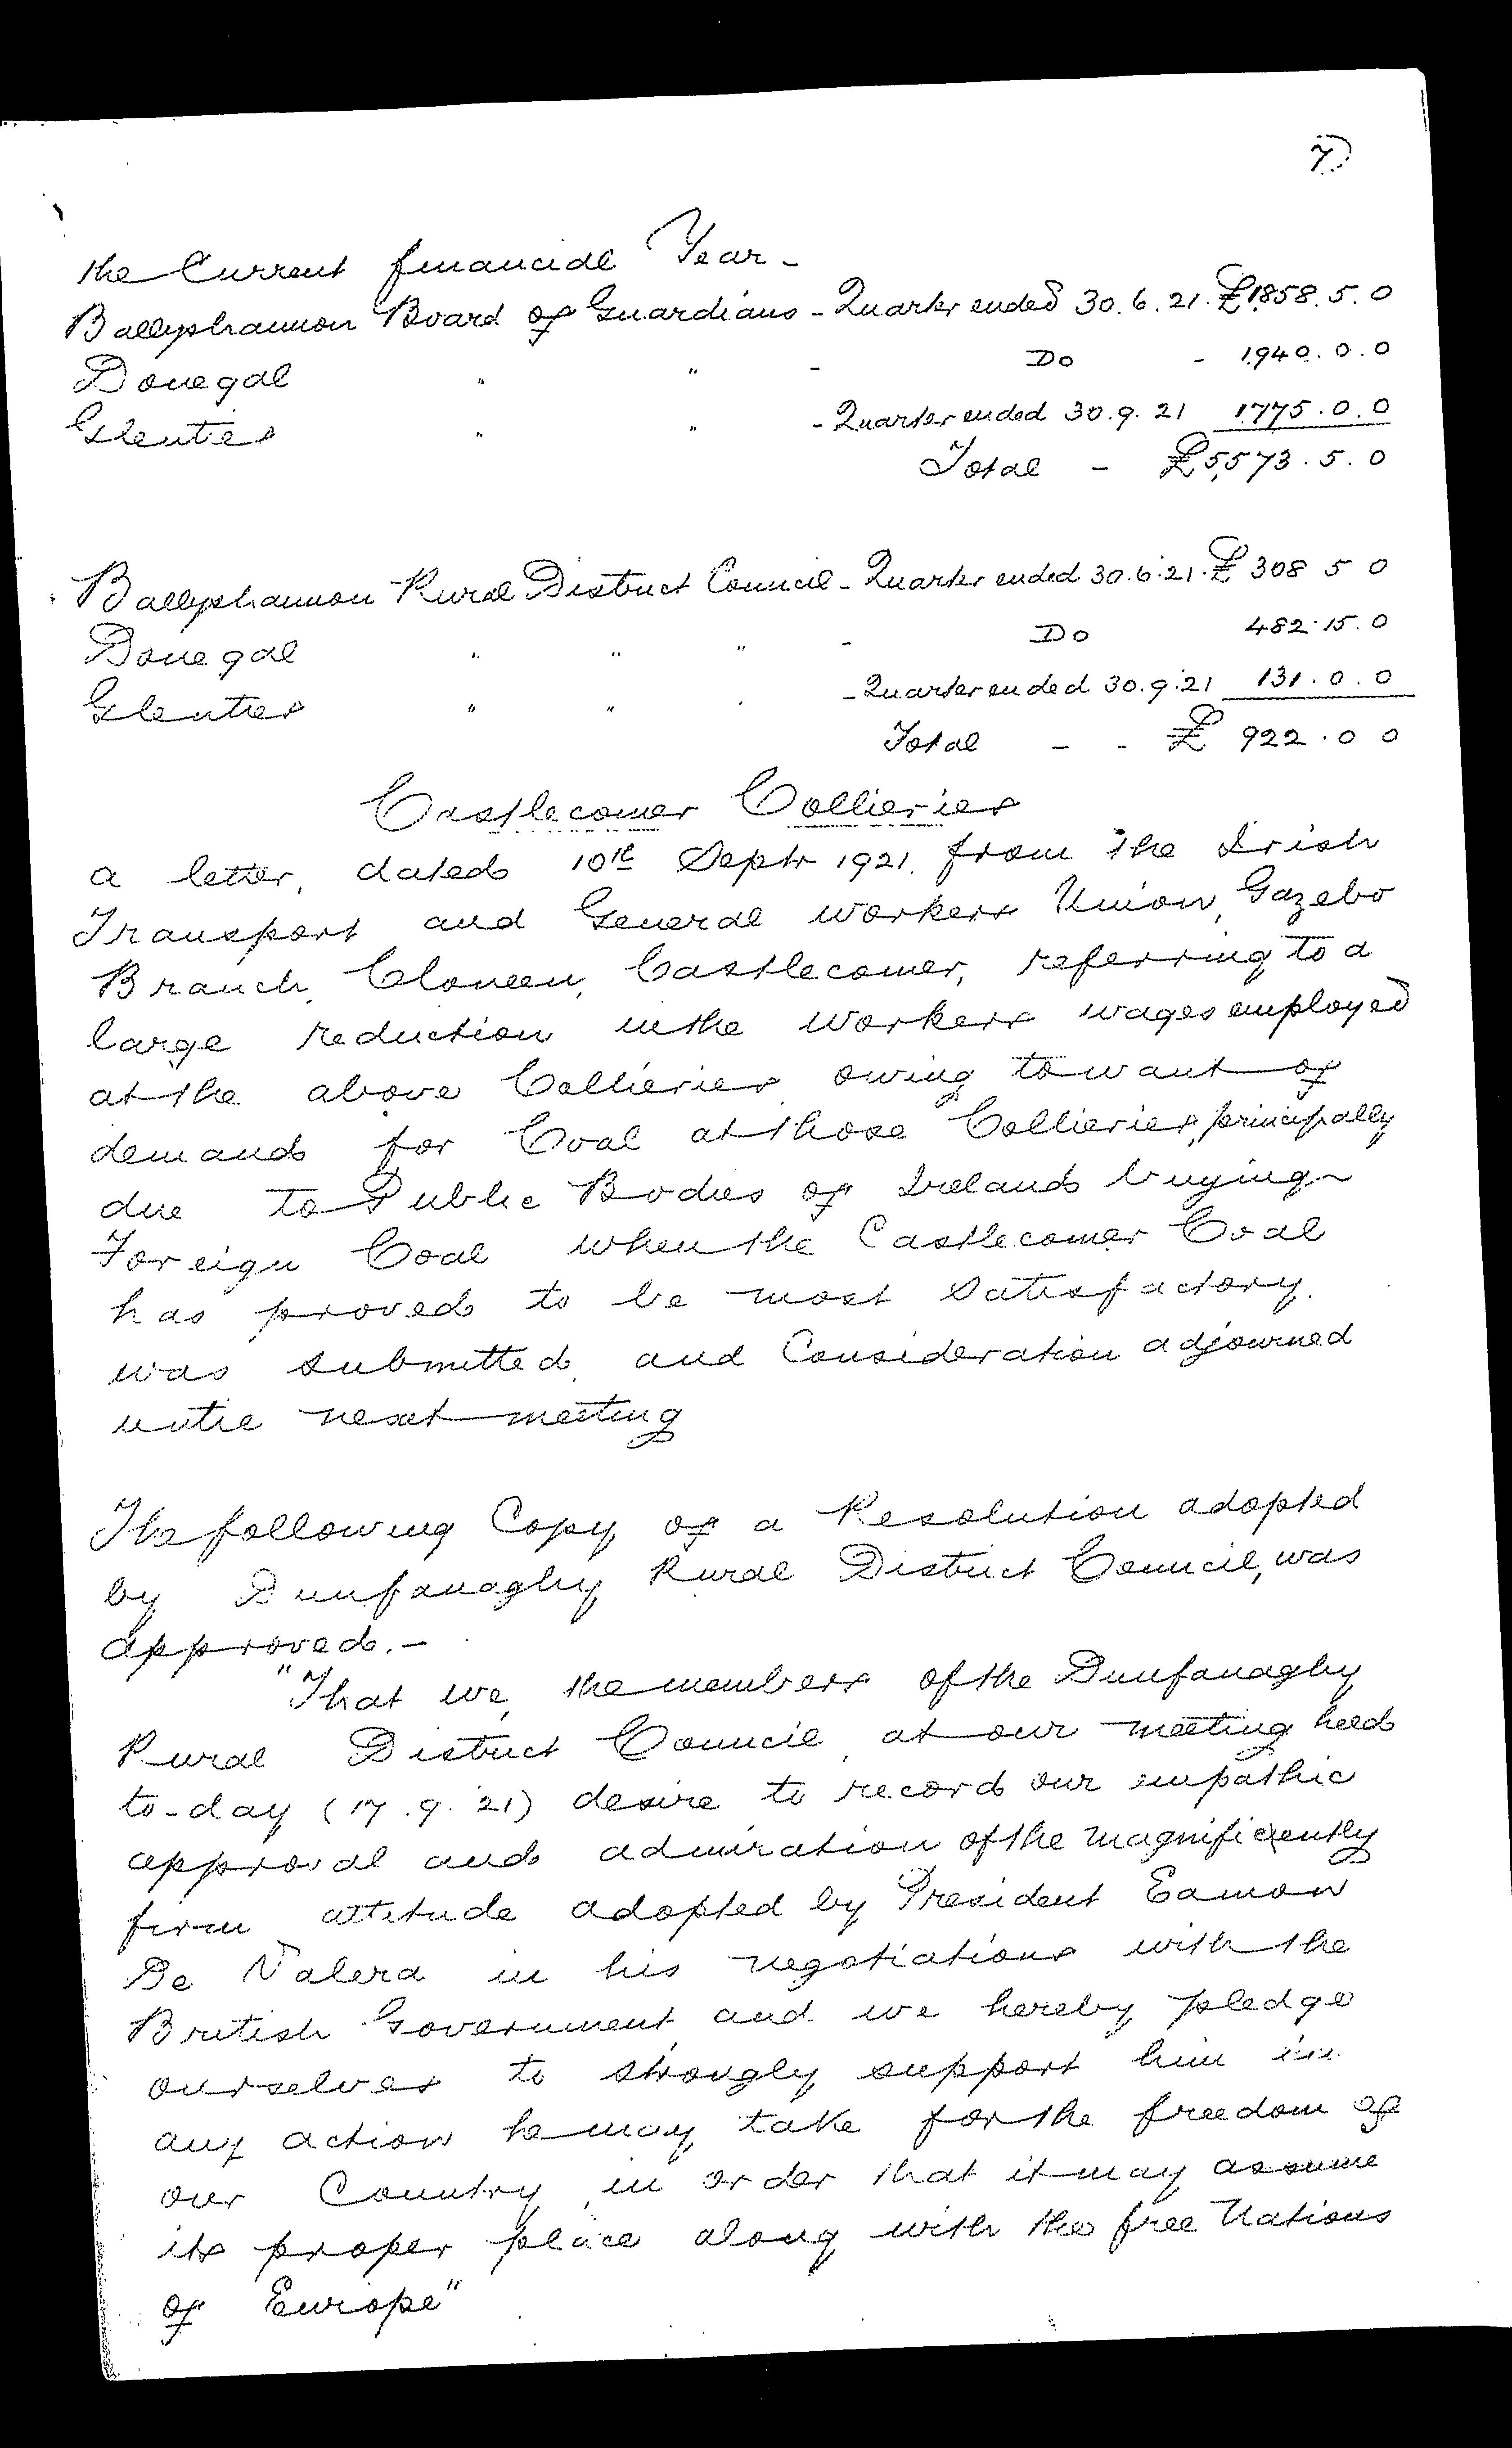 7
the Current financial Year -
Ballyshannon Board of Guardians - Quarter ended 30.6.21. £1858.5.0
Donegal " " - Do - 1940.0.0
Glenties " " - Quarter ended 30.9.21 1775.0.0
Total - £5,573.5.0
Ballyshannon Rural District Council - Quarter ended 30.6.21. £308 5 0
Donegal " " " - Do 482.15.0
Glenties " " " - Quarter ended 30.9.21 131.0.0
Total - - £ 922.0 0
Castlecomer Collieries
a letter, dated 10th Septr 1921. from the Irish
Transport and General Workers Union, Gazebo
Branch, Cloneen, Castlecomer, referring to a
large reduction in the workers wages employed
at the above Collieries owing to want of
demand for Coal at those Collieries, principally
due to Public Bodies of Ireland buying
Foreign Coal when the Castlecomer Coal
has proved to be most satisfactory.
was submitted, and Consideration adjourned
until next meeting
The following Copy of a Resolution adopted
by Dunfanaghy Rural District Council, was
approved.-
"That we, the members of the Dunfanaghy
Rural District Council, at our meeting held
to-day (17.9.21) desire to record our empathic
approval and admiration of the magnificently
firm attitude adopted by President Eamon
De Valera in his negotiations with the
British Government, and we hereby pledge
ourselves to strongly support him in
any action he may take for the freedom of
our Country, in order that it may assume
its proper place along with the free Nations
of Europe"